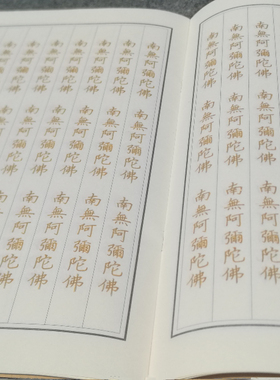 南無阿彌陀佛南無阿彌陀佛南無阿彌陀佛
南無阿彌陀佛南無阿彌陀佛南無阿彌陀佛
南無阿彌陀佛南無阿彌陀佛南無阿彌陀佛
南無阿彌陀佛南無阿彌陀佛南無阿彌陀佛
南無阿彌陀佛南無阿彌陀佛南無阿彌陀佛
南無阿彌陀佛南無阿彌陀佛南無阿彌陀佛
南無阿彌陀佛南無阿彌陀佛南無阿彌陀佛